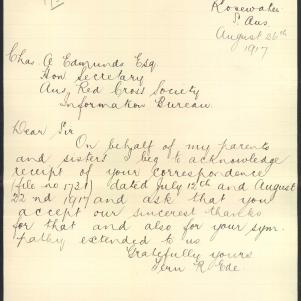 Rosewater
S Aus
August 26th
1917
Chas. A Edmunds Esq.
Hon Secretary
Aus Red Cross Society
Information Bureau.
Dear Sir
On behalf of my parents
and sisters I beg to acknowledge
receipt of your correspondence
(file no 1731) dated July 12th and August
22nd 1917 and ask that you
accept our sincerest thanks
for that and also for your sym-
pathy extended to us
Gratefully yours
Fern R Ede